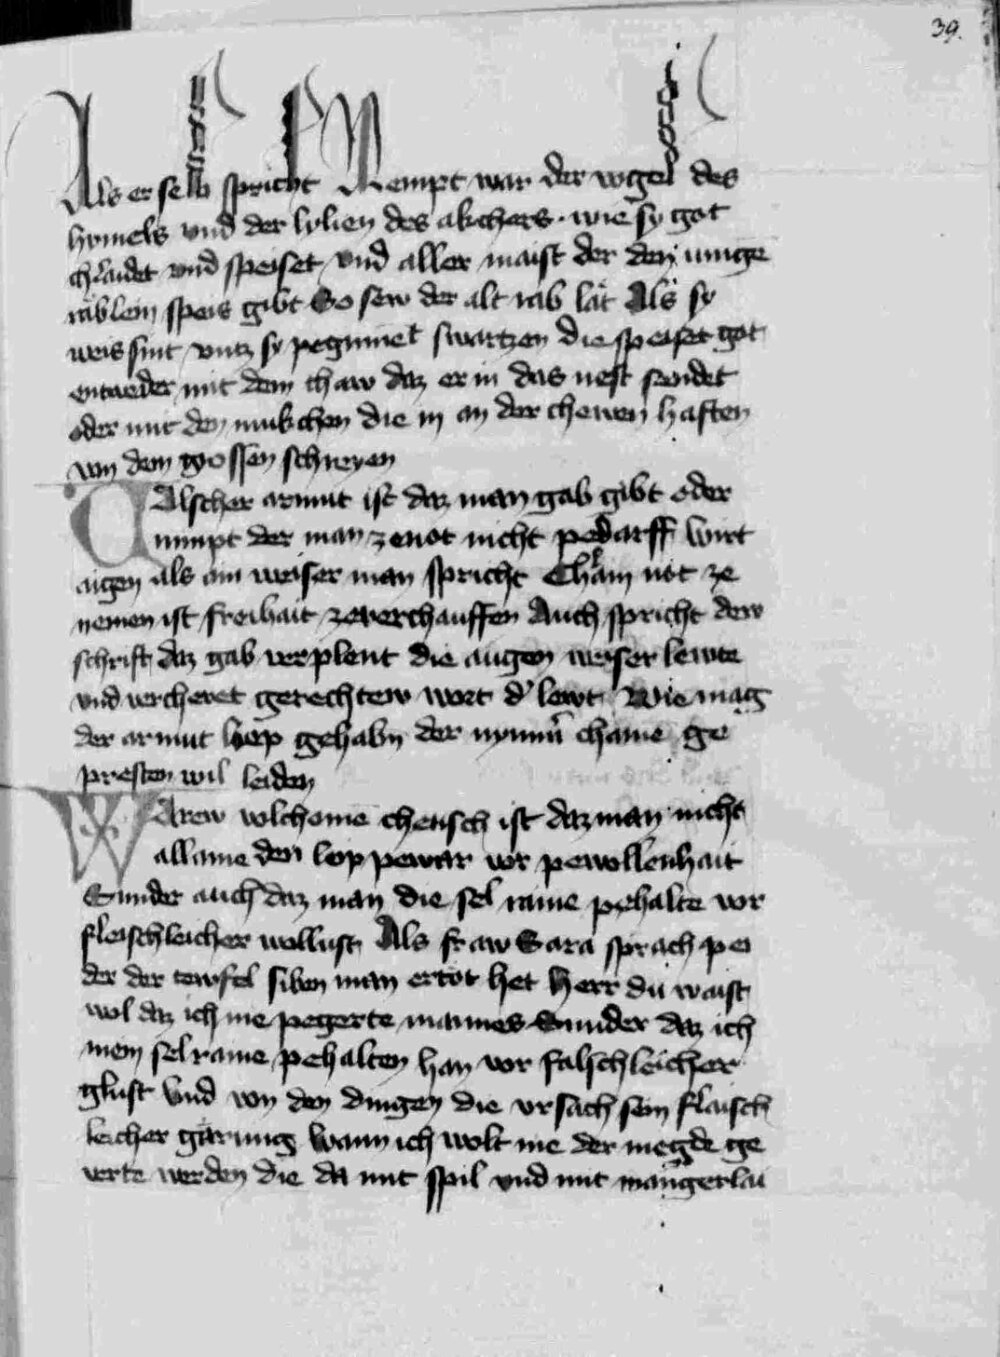 39.
Als er selb spricht Nempt war der vogel des
hymels vnd der lylien des akchers · wie sy got
chlaidet vnd speiset vnd aller maist der den iunge
råblein speis gibt So sew der alt rab låt Als sy
weis sint vntz sy peginnet swartzen die speiset got
entweder mit dem thaw daz er in das nest sendet
oder mit den mukchen die in an der chewen haften
von dem grossen schreyen
Valscher armut ist daz man gab gibt oder
nimpt der man zenot nicht pedarff wirt
aigen als ain weiser man spricht Chain not ze
nemen ist freihait zeverchauffen Auch spricht dew
schrift daz gab verplent die augen weiser lewte
vnd vercheret gerechtew wort d' lewt Wie mag
der armut lop gehabn der nymm̄ chaine ge
presten wil leiden
Warew volchome cheusch ist daz man nicht
allaine den leip pewar vor pewollenhait
Sunder auch daz man die sel raine pehalte vor
fleischleicher wollust Als fraw Sara sprach pei
der der tewfel siben man ertot het Herr du waist
wol daz ich nie pegerte mannes Sunder daz ich
mein sel raine pehalten han vor falschleicher
glust Vnd von den dingen die vrsach sein flaisch
leicher gårung Wann ich wolt nie der megde ge
verte werden die da mit spil vnd mit mangerlai